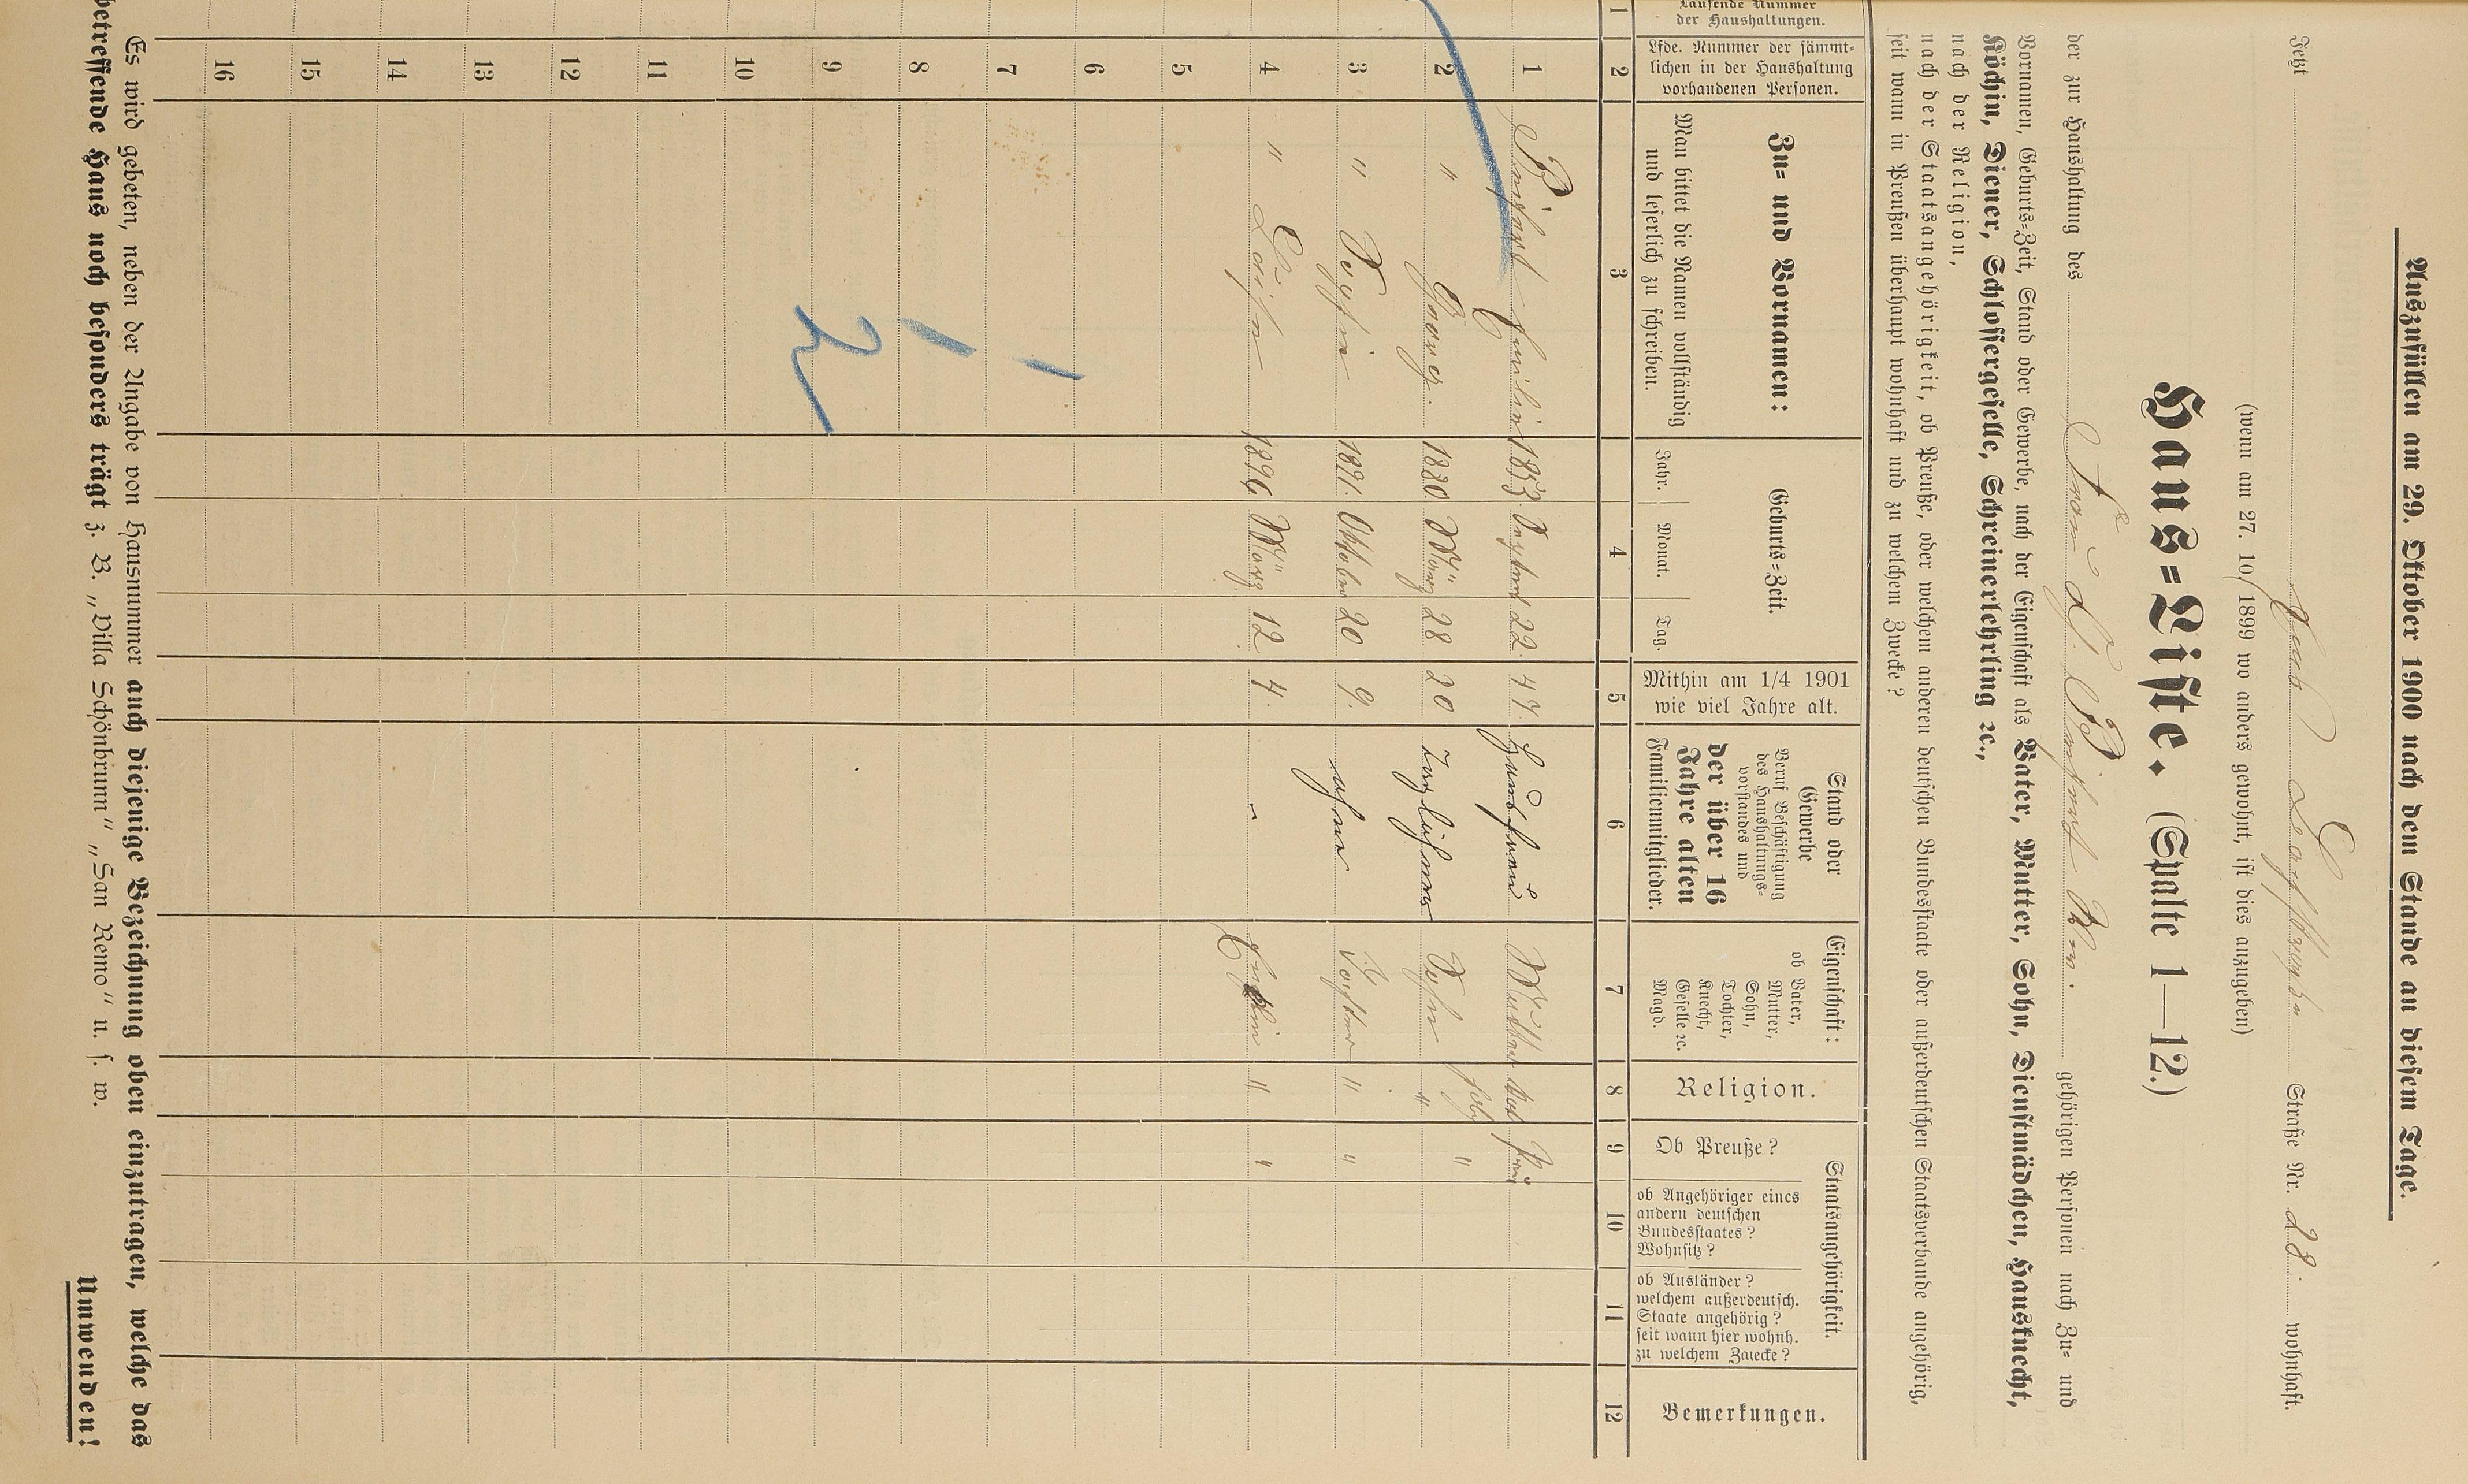 Auszufüllen am 29. Oktober 1900 nach dem Stande an diesem Tage.
Jetzt Straße Nr. 28. wohnhaft.
(wenn am 27. 10/ 1899 wo anders gewohnt, ist dies anzugeben)
Haus-Liste. (Spalte 1—12.)
der zur Haushaltung des Frau gehörigen Personen nach Zu- und
Vornamen, Geburts-Zeit, Stand oder Gewerbe, nach der Eigenschaft als Vater, Mutter, Sohn, Dienstmädchen, Hausknecht,
Köchin, Diener, Schlossergeselle, Schreinerlehrling ꝛc.,
nach der Religion,
nach der Staatsangehörigkeit, ob Preuße, oder welchem anderen deutschen Bundesstaate oder außerdeutschen Staatsverbande angehörig,
seit wann in Preußen überhaupt wohnhaft und zu welchem Zwecke?
Laufende Nummer
der Haushaltungen.
Lfde. Nummer der sämmt-
lichen in der Haushaltung
vorhandenen Personen.
Zu- und Vornamen:
Man bittet die Namen vollständig
und leserlich zu schreiben.
Geburts-Zeit.
Jahr. Monat. Tag.
Mithin am 1/4 1901
wie viel Jahre alt.
Stand oder
Gewerbe
Beruf Beschäftigung
des Haushaltungs-
vorstandes und
der über 16
Jahre alten
Familienmitglieder.
Eigenschaft:
ob Vater,
Mutter,
Sohn,
Tochter,
Knecht,
Geselle ꝛc.
Magd.
Religion.
Staatsangehörigkeit.
Ob Preuße?
ob Angehöriger eines
andern deutschen
Bundesstaates?
Wohnsitz?
ob Ausländer?
welchem außerdeutsch.
Staate angehörig?
seit wann hier wohnh.
zu welchem Zwecke?
Bemerkungen.
1 2 3 4 5 6 7 8 9 10 11 12
1 1853. 22. 47. Mutter
2 " Georg. 1880 März 28 20 Sohn " "
3 " 1891. Oktober 20 9. ohne Tochter " "
4 " 1896 März 12 4. " "
5
6
7
8
9
10
11
12
13
14
15
16
Es wird gebeten, neben der Angabe von Hausnummer auch diejenige Bezeichnung oben einzutragen, welche das
betreffende Haus noch besonders trägt z. B. „Villa Schönbrunn“ „San Remo“ u. s. w.
Umwenden!